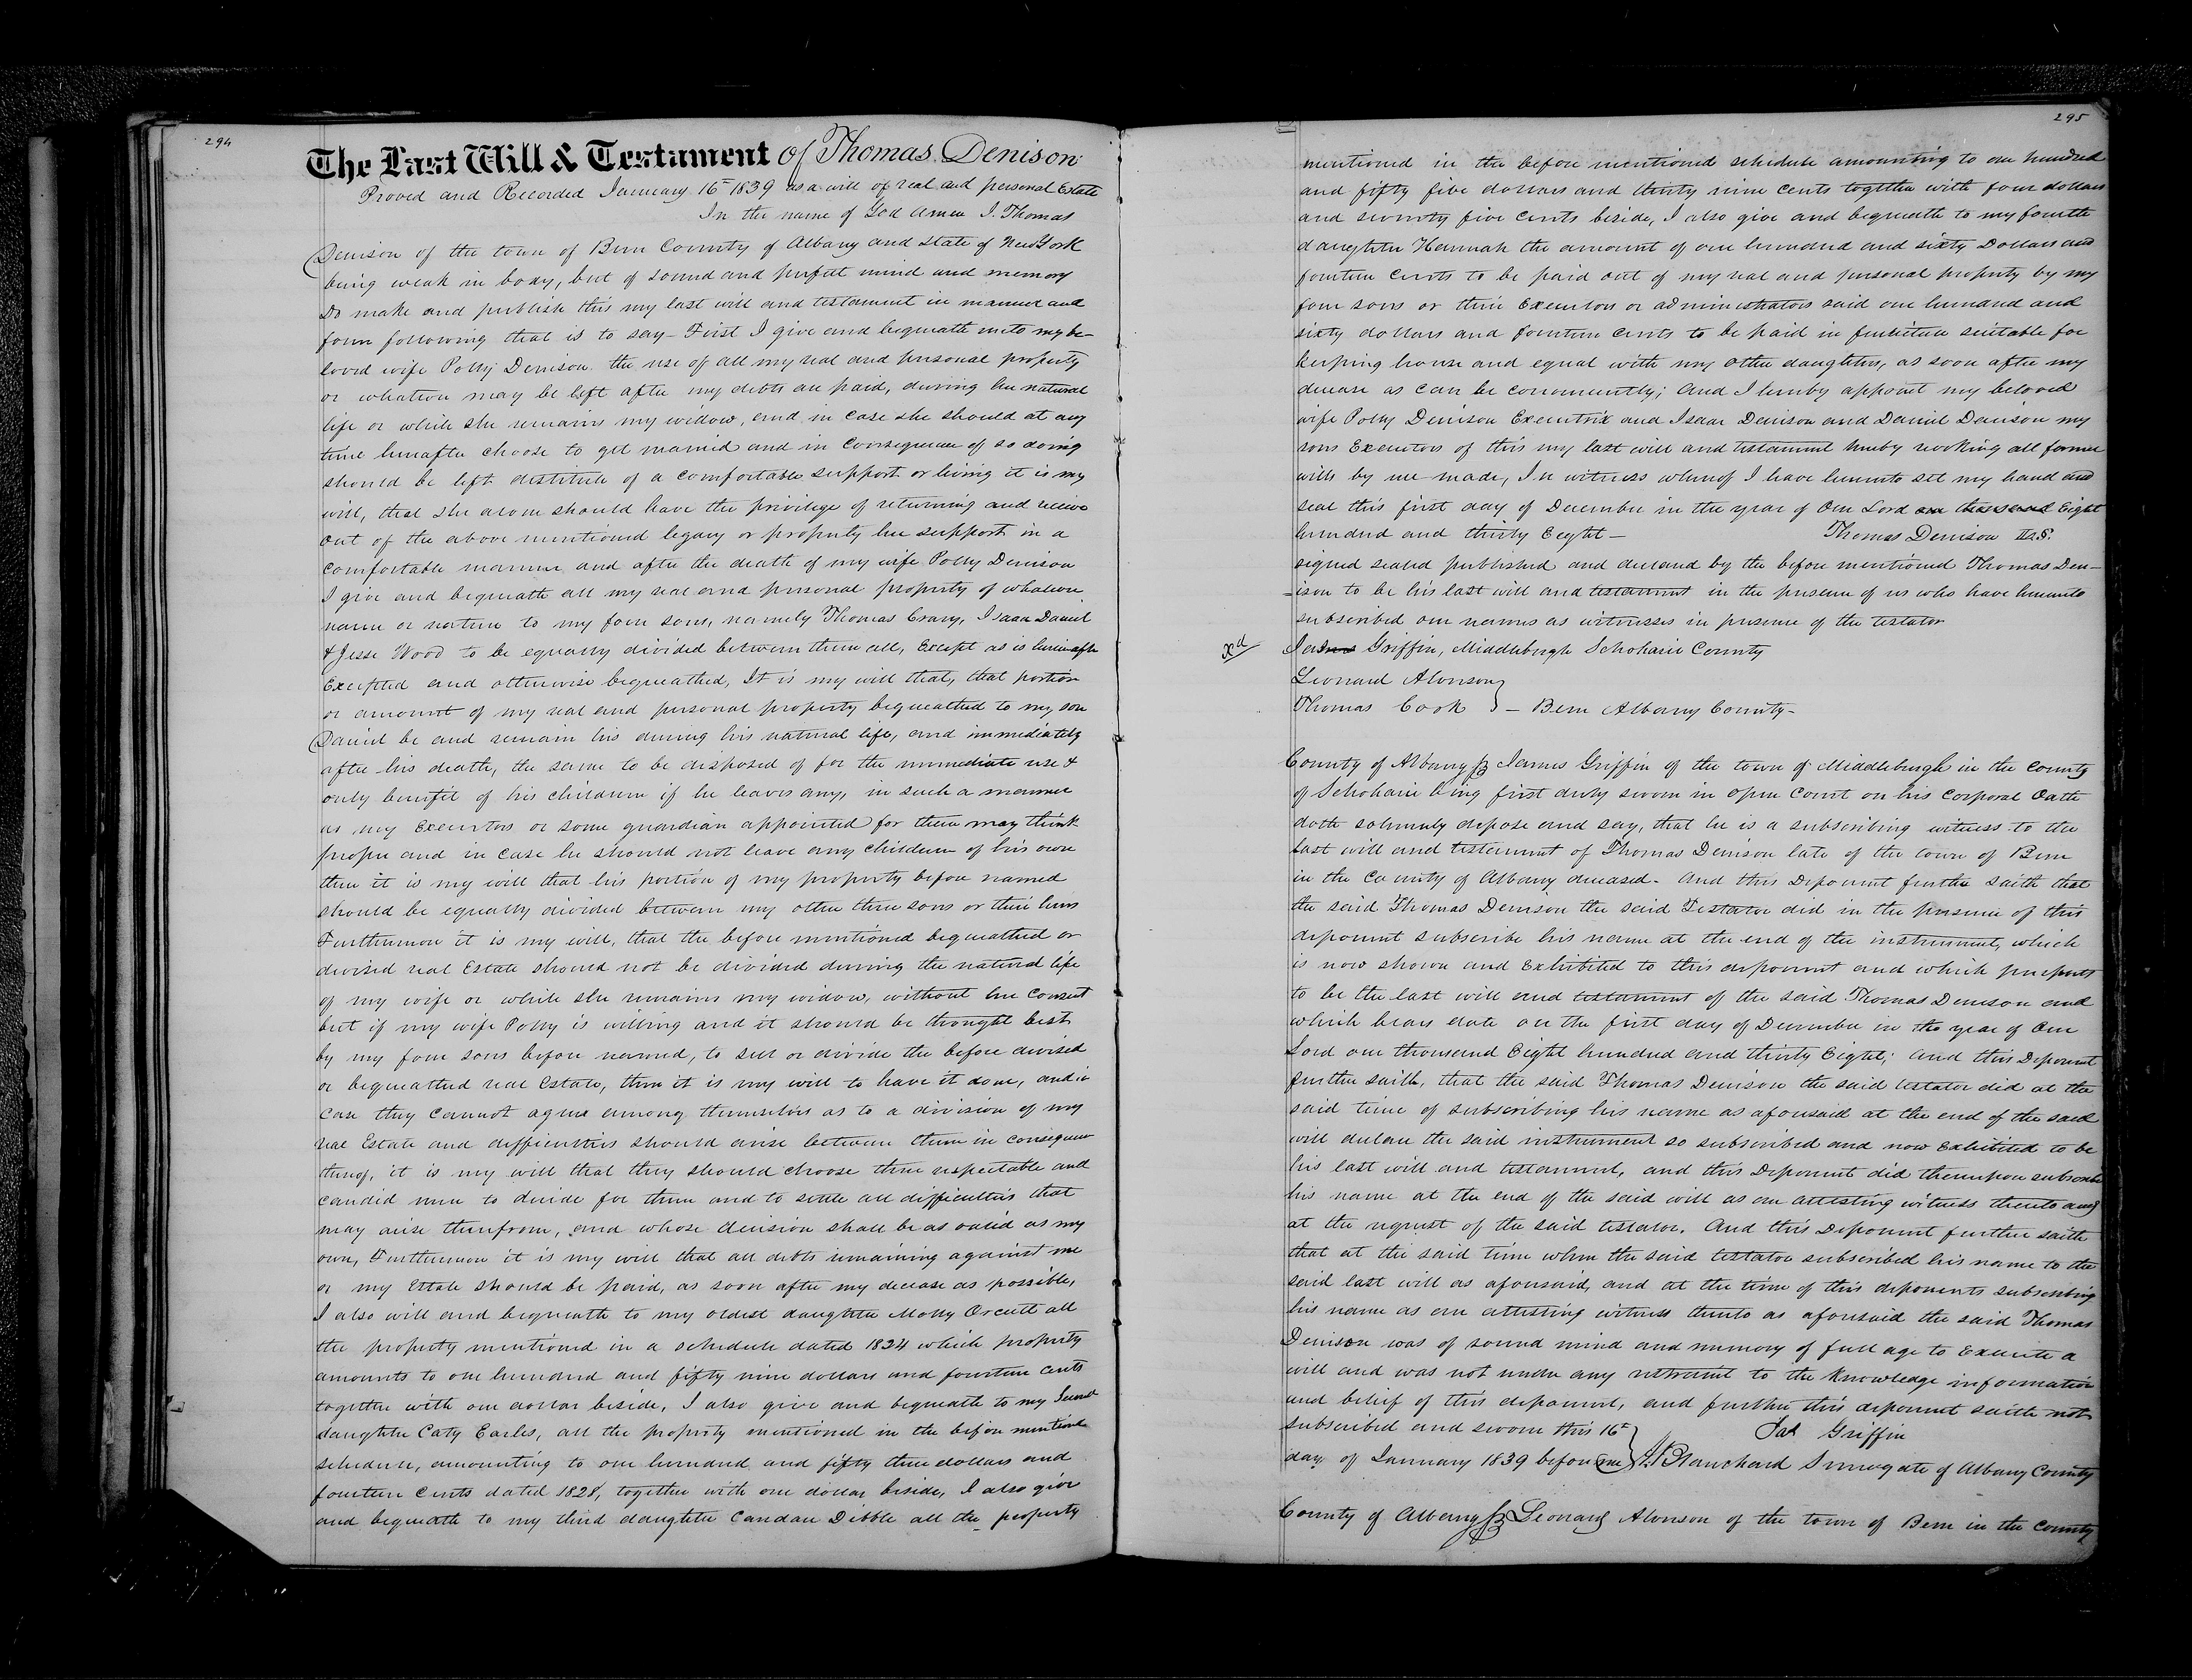 294
The Last Will & Testament of Thomas Denison
Proved and Recorded January 16th 1839 as a will of real and personal Estate
In the name of God Amen I. Thomas
Denison of the town of Bern County of Albany and State of New York
being weak in body, but of sound and perfect mind and memory
Do make and publish this my last will and testament in manner and
form following that is to say - First I give and bequeath unto my be-
loved wife Polly Denison the use of all my real and personal property
or whatever may be left after my debts are paid, during her natural
life or while she remains my widow, and in case she should at any
time hereafter choose to get married and in consequence of so doing
should be left destitute of a comfortable support or living it is my
will, that she alone should have the privilege of returning and receive
out of the above mentioned legacy or property her support in a
comfortable manner and after the death of my wife Polly Denison
I give and bequeath all my real and personal property of whatever
name or nature to my four sons, namely Thomas Crary, Isaac Daniel
& Jesse Wood to be equally divided between them all, Except as is hereinafter
Excepted and otherwise bequeathed, It is my will that, that portion
or amount of my real and personal property bequeathed to my son
Daniel be and remain his during his natural life, and immediately
after his death, the same to be disposed of for the immediate use &
only benefit of his children if he leaves any, in such a manner
as my Executors or some guardian appointed for them may think
proper and in case he should not leave any children of his own
then it is my will that his portion of my property before named
should be equally divided between my other three sons or their heirs
Furthermore it is my will, that the before mentioned bequeathed or
devised real Estate should not be divided during the natural life
of my wife or while she remains my widow, without her consent
but if my wife Polly is willing and it should be thought best
by my four sons before named, to sell or divide the before devised
or bequeathed real Estate, then it is my will to have it done, and in
case they cannot agree among themselves as to a division of my
real Estate and difficulties should arise between them in consequence
thereof, it is my will that they should choose three respectable and
candid men to decide for them and to settle all difficulties that
may arise therefrom, and whose decision shall be as valid as my
own, Furthermore it is my will that all debts remaining against me
or my Estate should be paid, as soon after my decease as possible,
I also will and bequeath to my oldest daughter Molly Orcutt all
the property mentioned in a schedule dated 1824 which property
amounts to one hundred and fifty nine dollars and fourteen cents
together with one dollar beside, I also give and bequeath to my Second
daughter Caty Earles, all the property mentioned in the before mentioned
schedule, amounting to one hundred and fifty three dollars and
fourteen cents dated 1828, together with one dollar beside, I also give
and bequeath to my third daughter Candace Dibble all the property
295
mentioned in the before mentioned schedule amounting to one hundred
and fifty five dollars and thirty nine cents together with four dollars
and seventy five cents beside, I also give and bequeath to my fourth
daughter Hannah the amount of one hundred and sixty Dollars and
fourteen cents to be paid out of my real and personal property by my
four sons or their Executors or administrators said one hundred and
sixty dollars and fourteen cents to be paid in furniture suitable for
keeping house and equal with my other daughters, as soon after my
decease as can be conveniently; And I hereby appoint my beloved
wife Polly Denison Executrix and Isaac Denison and Daniel Denison my
sons Executors of this my last will and testament hereby revoking all former
wills by me made, In witness whereof I have hereunto set my hand and
seal this first day of December in the year of Our Lord one thousand Eight
hundred and thirty Eight - Thomas Denison L.S.
signed sealed published and declared by the before mentioned Thomas Den-
-ison to be his last will and testament in the presence of us who have hereunto
subscribed our names as witnesses in presence of the testator
James Griffin, Middleburgh Schoharie County
Leonard Alverson
Thomas Cook } - Bern Albany County -
County of Albany ss James Griffin of the town of Middleburgh in the County
of Schoharie being first duly sworn in open Court on his Corporal Oath
doth solemnly depose and say, that he is a subscribing witness to the
last will and testament of Thomas Denison late of the town of Bern
in the County of Albany deceased - And this Deponent further saith that
the said Thomas Denison the said Testator did in the presence of this
deponent subscribe his name at the end of the instrument, which
is now shown and Exhibited to this deponent and which purports
to be the last will and testament of the said Thomas Denison and
which bears date on the first day of December in the year of Our
Lord one thousand Eight hundred and thirty Eight; And this Deponent
further saith, that the said Thomas Denison the said testator did at the
said time of subscribing his name as aforesaid at the end of the said
will declare the said instrument so subscribed and now Exhibited to be
his last will and testament, and this Deponent did thereupon subscribe
his name at the end of the said will as an attesting witness thereto and
at the request of the said testator. And this Deponent further saith
that at the said time when the said testator subscribed his name to the
said last will as aforesaid, and at the time of this deponents subscribing
his name as an attesting witness thereto as aforesaid the said Thomas
Denison was of sound mind and memory of full age to Execute a
will and was not under any restraint to the knowledge information
and belief of this deponent, and further this deponent saith not
subscribed and sworn this 16th } Jas Griffin
day of January 1839 before me } A. Blanchard Surrogate of Albany County
County of Albany ss Leonard Alverson of the town of Bern in the County